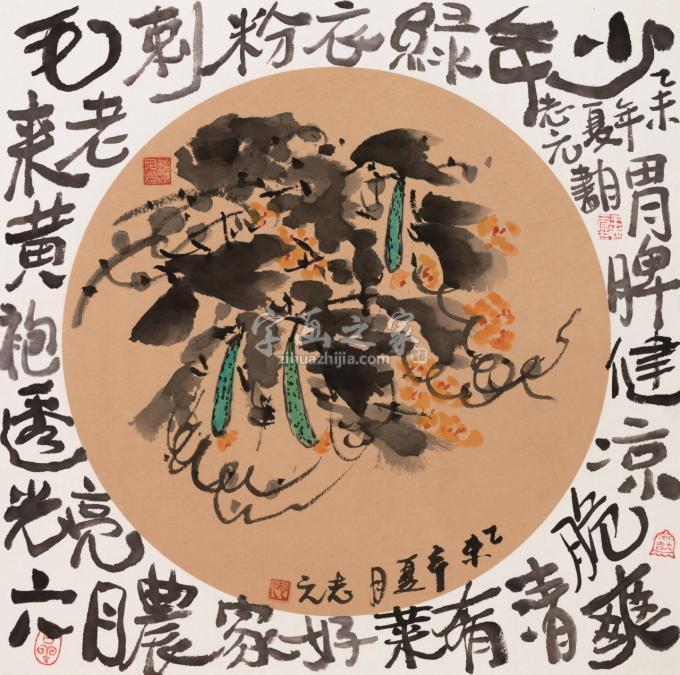 少年綠衣粉刺毛
老来黄袍透亮光
六月農家好菜有
清爽脆凉健脾胃
乙未年夏月
志元書
乙未年夏月志元
字画之家
zihuazhijia.com